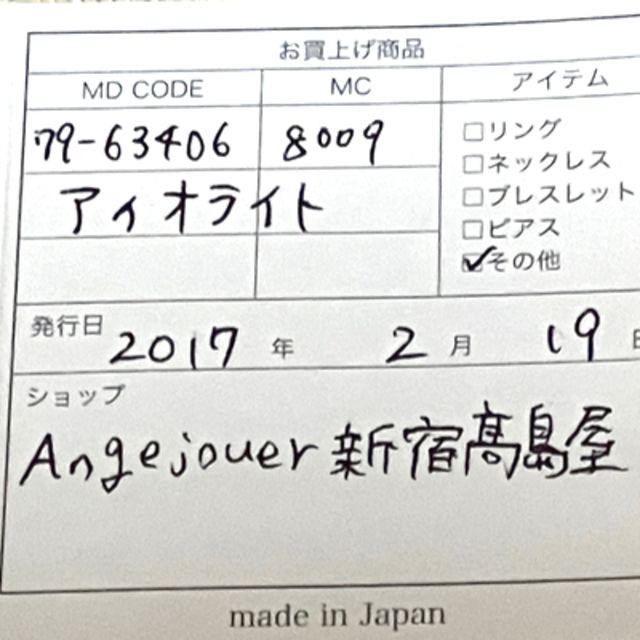 お買上げ商品
MD CODE MC アイテム
79-63406 8009
アイオライト
□リング
□ネックレス
□ブレスレット
□ピアス
☑その他
発行日 2017 年 2 月 19 日
ショップ
Angejouer 新宿髙島屋
made in Japan